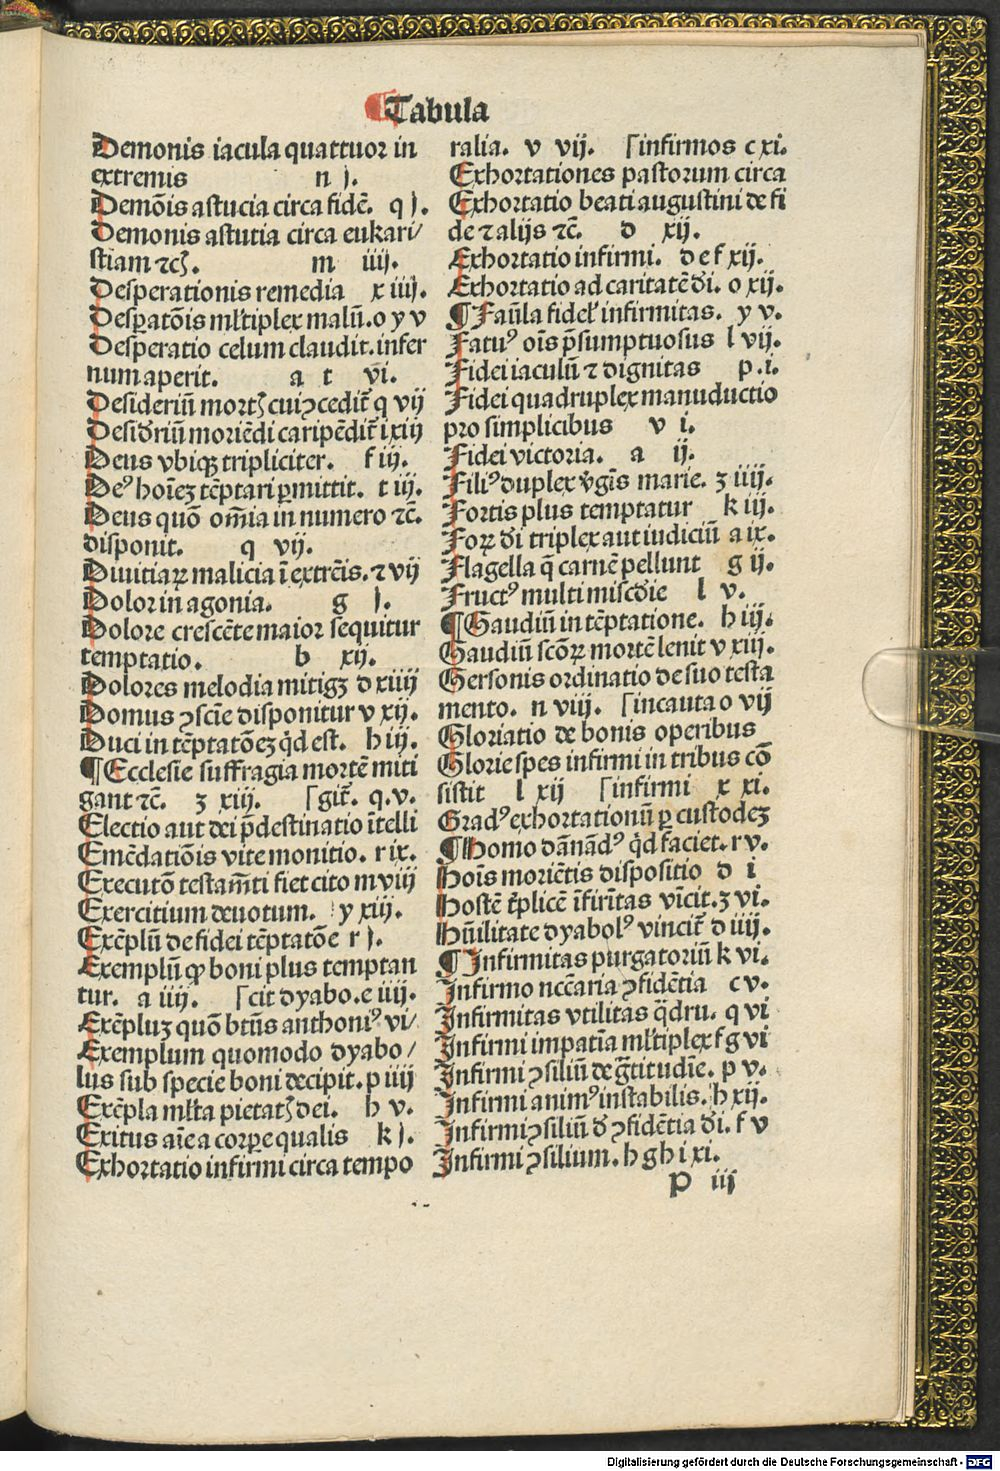 ¶Tabula
Demonis iacula quattuor in
extremis n j.
Demōis astucia circa fidē. q j.
Demonis astutia circa eukari/
stiam ⁊cꝫ. m iiij.
Desperationis remedia x iiij.
Desꝑatōis ml̓tiplex malū. o y v
Desperatio celum claudit. infer
num aperit. a t vi.
Desideriū mortꝫ cui ꝯcedit̄ q vij
Desid̓riū moriēdi caripēdit̄ i xiij
Deus vbiqꝫ tripliciter. f iij.
De⁹ hoīeꝫ tēptari ꝑmittit. t iij.
Deus quō om̄ia in numero ⁊c̄.
disponit. q vij.
Diuitiaꝝ malicia ī extrēis. ⁊ vij
Dolor in agonia. g j.
Dolore crescēte maior sequitur
temptatio. b xij.
Dolores melodia mitigꝫ d xiiij
Domus ꝯscīe disponitur v xij.
Duci in tēptatōeꝫ q̇d est. h iij.
¶Ecclesie suffragia mortē miti
gant ⁊c̄. ʒ xiij. ſgit̄. q. v.
Electio aut dei p̄destinatio ītelli
Emēdatiōis vite monitio. r ix.
Executō testam̄ti fiet cito m viij
Exercitium deuotum. y xiij.
Exēplū de fidei tēptatōe r j.
Exemplū ꝙ boni plus temptan
tur. a iiij. ſcit dyabo. e iiij.
Exēpluꝫ quō bt̄us anthoni⁹ vi/
Exemplum quomodo dyabo/
lus sub specie boni decipit. p iiij
Exēpla ml̓ta pietatꝫ dei. h v.
Exitus aīe a corꝑe qualis k j.
Exhortatio infirmi circa tempo
ralia. v vij. ſinfirmos c xi.
Exhortationes pastorum circa
Exhortatio beati augustini de fi
de ⁊ alijs ⁊c̄. d xij.
Exhortatio infirmi. d e f xij.
Exhortatio ad caritatē d̓i. o xij.
¶Faūla fidel̓ infirmitas. y v.
Fatu⁹ oīs p̄sumptuosus l vij.
Fidei iaculū ⁊ dignitas p. i.
Fidei quadruplex manuductio
pro simplicibus v i.
Fidei victoria. a ij.
Fili⁹ duplex v̓gīs marie. ʒ iiij.
Fortis plus temptatur k iij.
Foꝝ d̓i triplex aut iudiciū a ix.
Flagella q̄ carnē pellunt g ij.
Fruct⁹ multi misc̓die l v.
¶Gaudiū in tēptatione. h iij.
Gaudiū scōꝝ mortē lenit v xiij.
Gersonis ordinatio de suo testa
mento. n viij. ſincauta o vij
Gloriatio de bonis operibus
Glorie spes infirmi in tribus cō
sistit l xij ſinfirmi x xi.
Grad⁹ exhortationū ꝑ custodeꝫ
¶Homo dānād⁹ q̇d faciet. r v.
Hoīs moriētis dispositio d i
Hostē t̓plicē īfirītas vīcit. ʒ vi.
Hūilitate dyabol⁹ vincit̄ d iiij.
¶Infirmitas purgatoriū k vi.
Infirmo nccāria ꝯfidētia c v.
Infirmitas vtilitas q̄dru. q vi
Infirmi impatīa ml̓tiplex f g vi
Infirmi ꝯsiliū de gr̄titudīe. p v.
Infirmi anim⁹ instabilis. h xij.
Infirmi ꝯsiliū d̓ ꝯfidētia d̓i. f v
Infirmi ꝯsilium. h g h i xi.
P iij
Digitalisierung gefördert durch die Deutsche Forschungsgemeinschaft - DFG